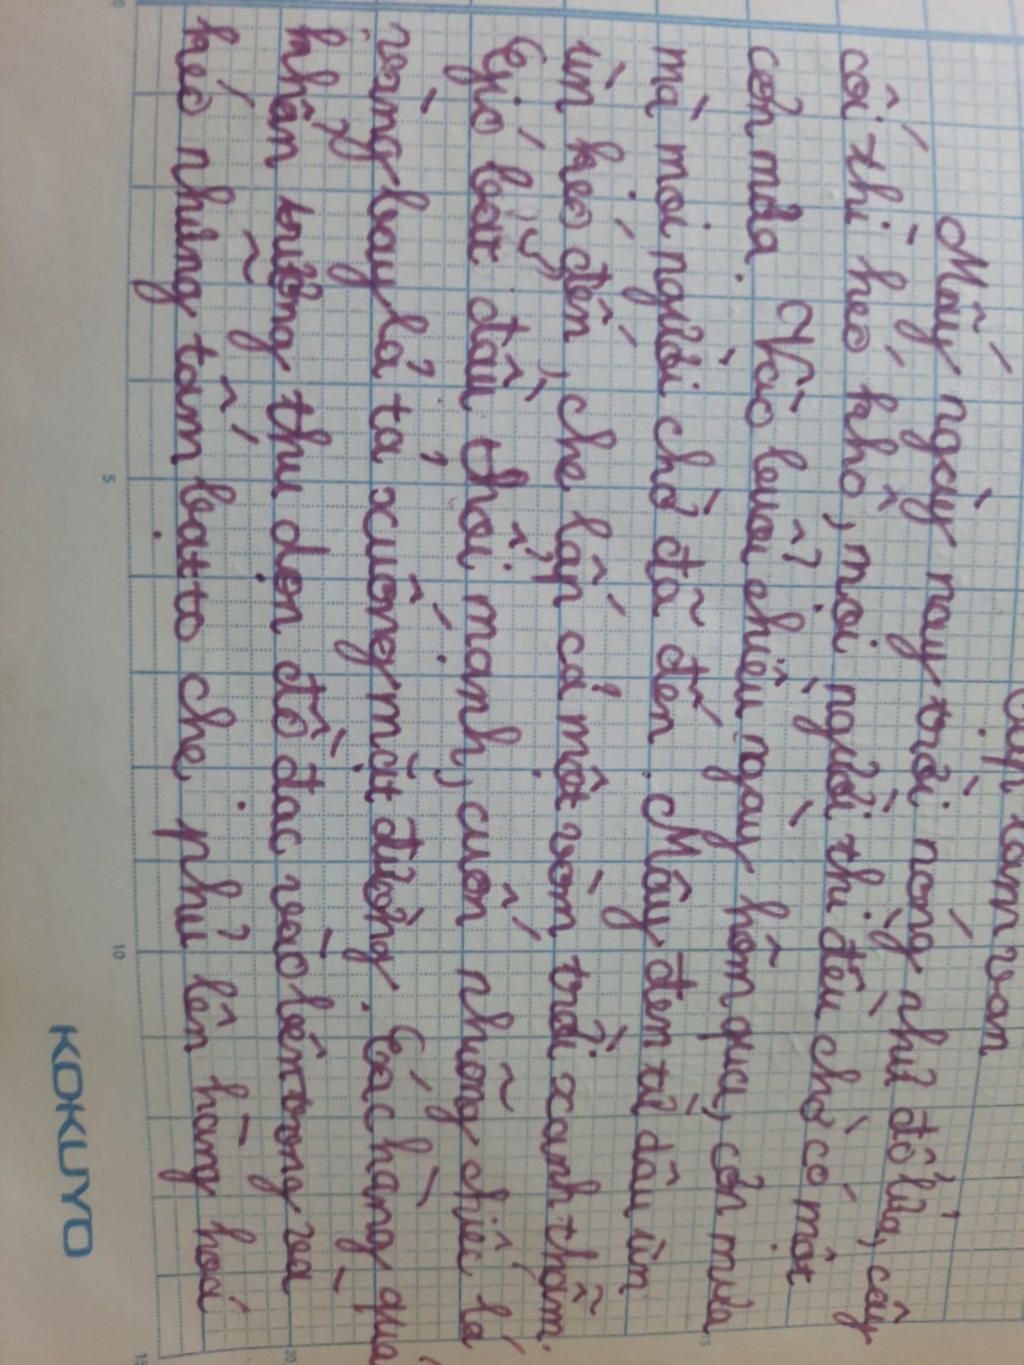 Tập làm văn
Mấy ngày nay trời nóng như đổ lửa, cây
cối thì héo khô, mọi người thì đều chờ có một
cơn mưa. Vào buổi chiều ngày hôm qua, cơn mưa
mà mọi người chờ đã đến. Mây đen từ đâu ùn
ùn kéo đến, che lấp cả một vòm trời xanh thẫm.
Gió bắt đầu thổi mạnh, cuốn những chiếc lá
vàng bay lả tả xuống mặt đường. Các hàng quá
khẩn trương thu dọn đồ đạc vào bên trong và
kéo những tấm bạt to che phủ lên hàng hoá
5
10
15
20
15
KOKUYO